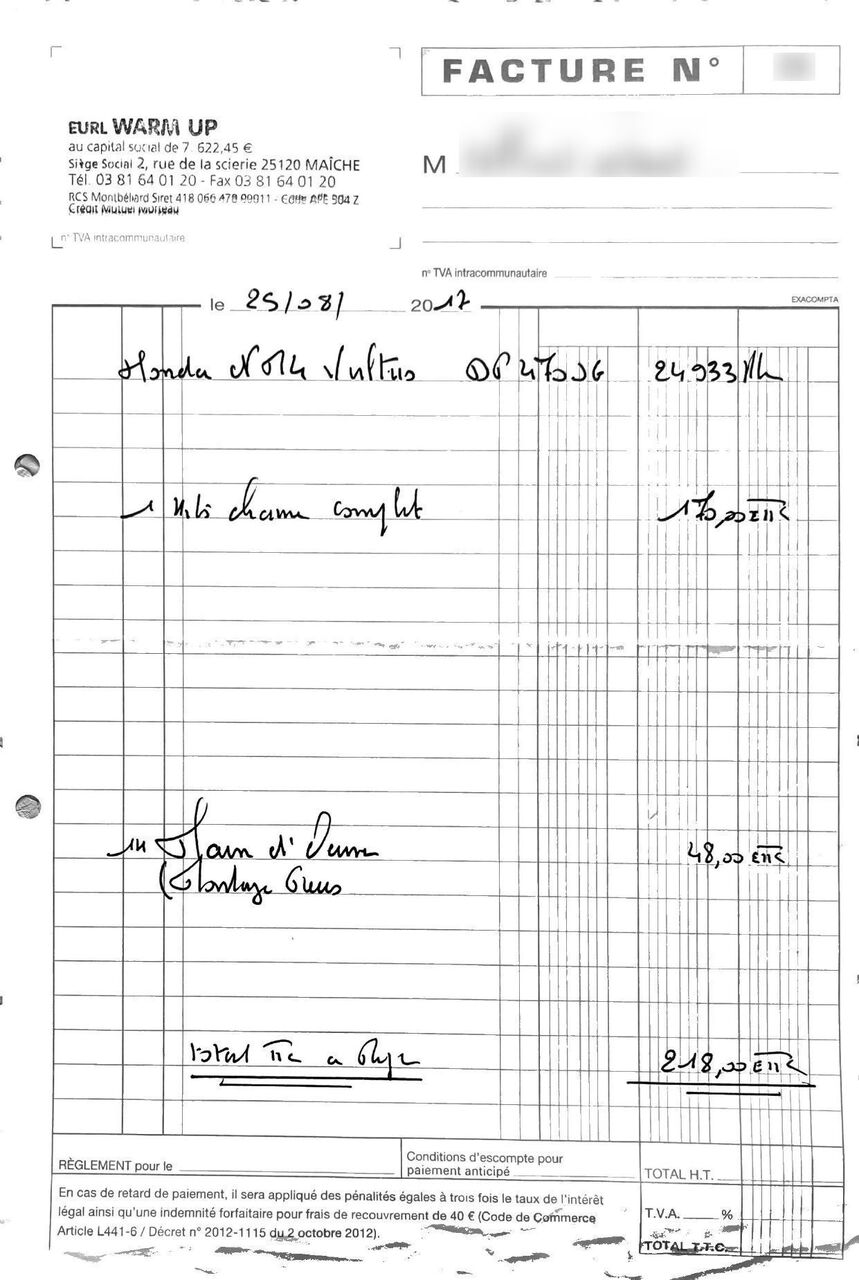 FACTURE N°
EURL WARM UP
au capital social de 7 622,45 €
Siège Social 2, rue de la scierie 25120 MAÎCHE
Tél. 03 81 64 01 20 - Fax 03 81 64 01 20
RCS Montbéliard Siret 418 066 478 00011 - Code APE 504 Z
Crédit Mutuel Morteau
n° TVA intracommunautaire
M
n° TVA intracommunautaire
le 25/08/ 2017
EXACOMPTA
Honda 24933 Km
1 Kit chaine complet 170,00 E TTC
1H Main d'Oeuvre 48,00 E TTC
(Montage
Total TTC a Payer 218,00 E TTC
RÈGLEMENT pour le
Conditions d'escompte pour
paiement anticipé
TOTAL H.T.
En cas de retard de paiement, il sera appliqué des pénalités égales à trois fois le taux de l'intérêt
légal ainsi qu'une indemnité forfaitaire pour frais de recouvrement de 40 € (Code de Commerce
Article L441-6 / Décret n° 2012-1115 du 2 octobre 2012).
T.V.A. %
TOTAL T.T.C.